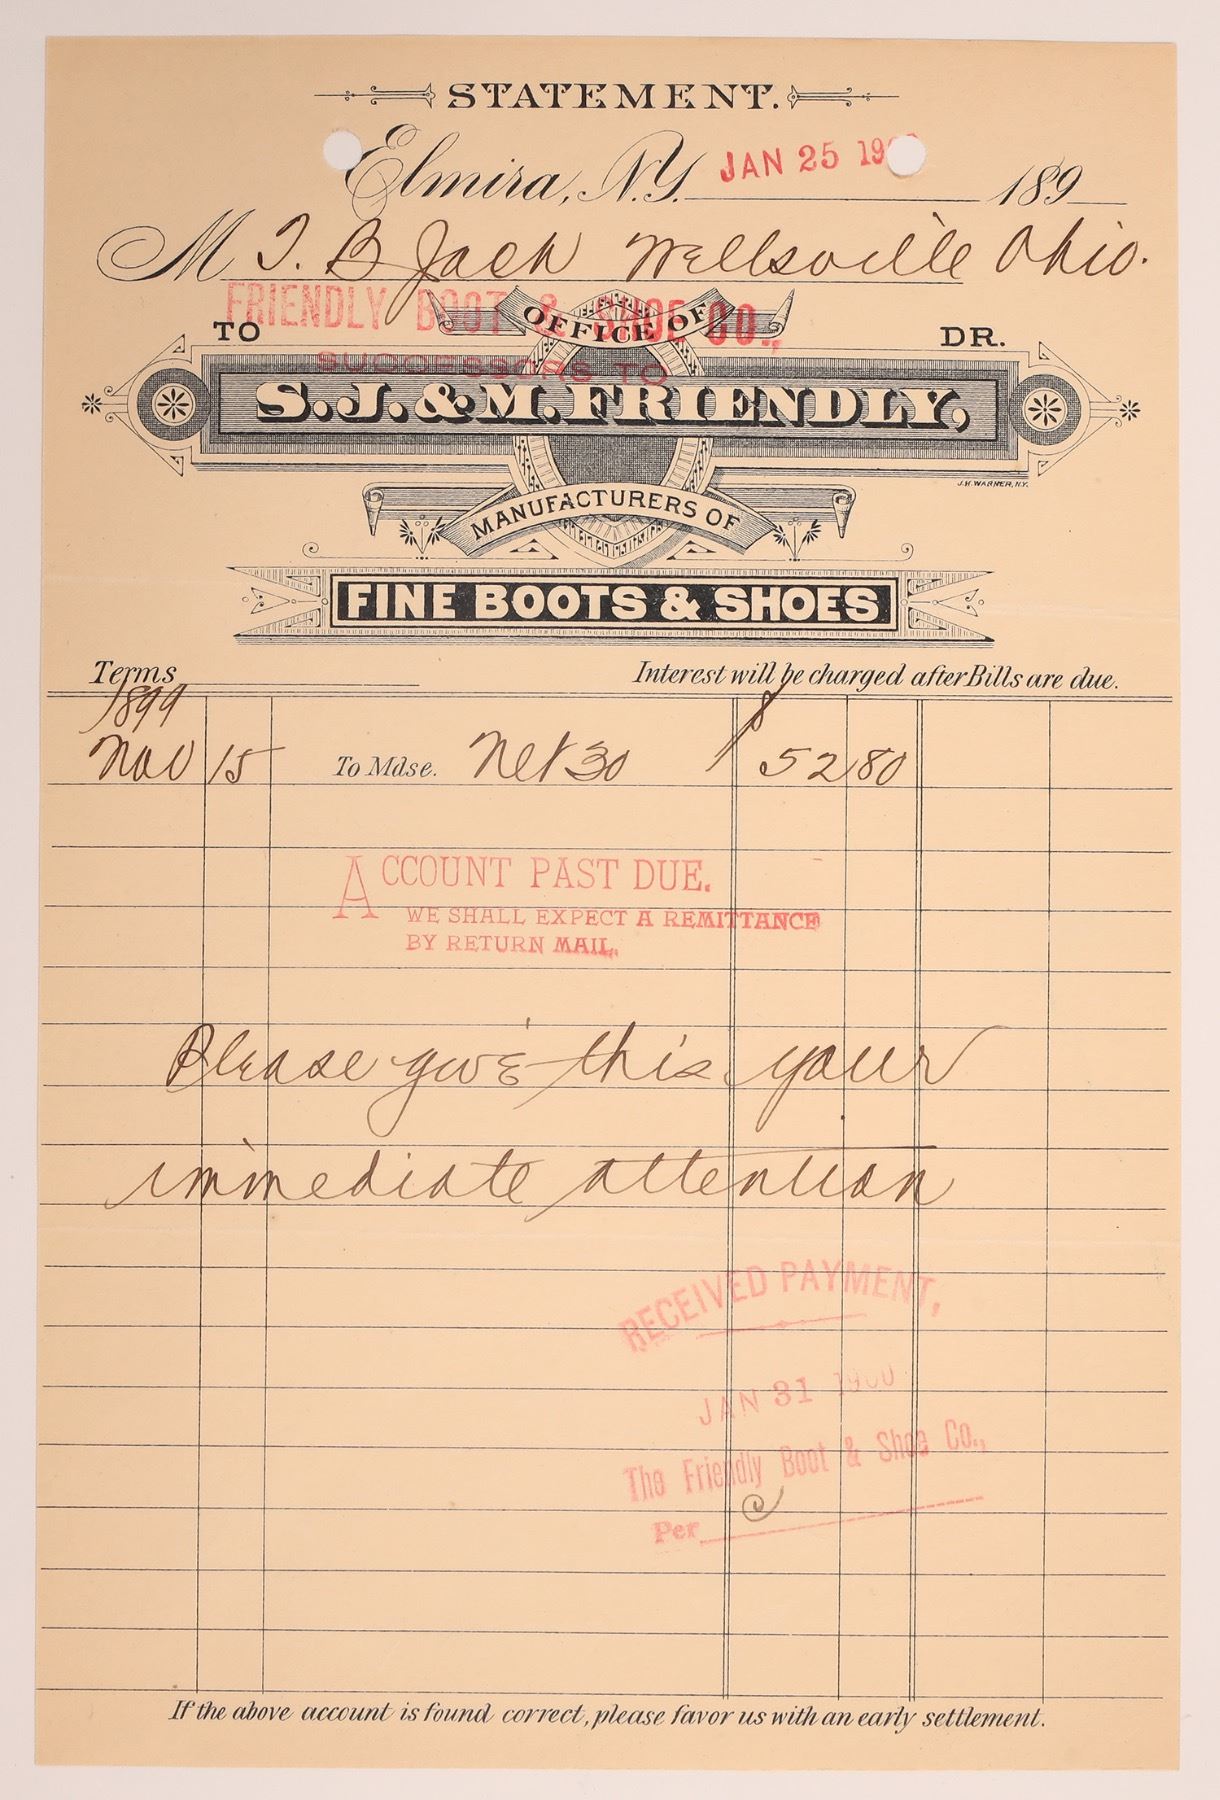 STATEMENT.
Elmira, N.Y. JAN 25 19 189
M T. B Jack Wellsville Ohio.
FRIENDLY BOOT & SHOE CO.,
TO OFFICE OF DR.
SUCCESSORS TO
S. J. & M. FRIENDLY,
J.H. WARNER, N.Y.
MANUFACTURERS OF
FINE BOOTS & SHOES
Terms Interest will be charged after Bills are due.
1899
Nov 15 To Mdse. Net 30 $ 52 80
ACCOUNT PAST DUE.
WE SHALL EXPECT A REMITTANCE
BY RETURN MAIL.
Please give this your
immediate attention
RECEIVED PAYMENT,
JAN 31 1900
The Friendly Boot & Shoe Co.,
Per
If the above account is found correct, please favor us with an early settlement.